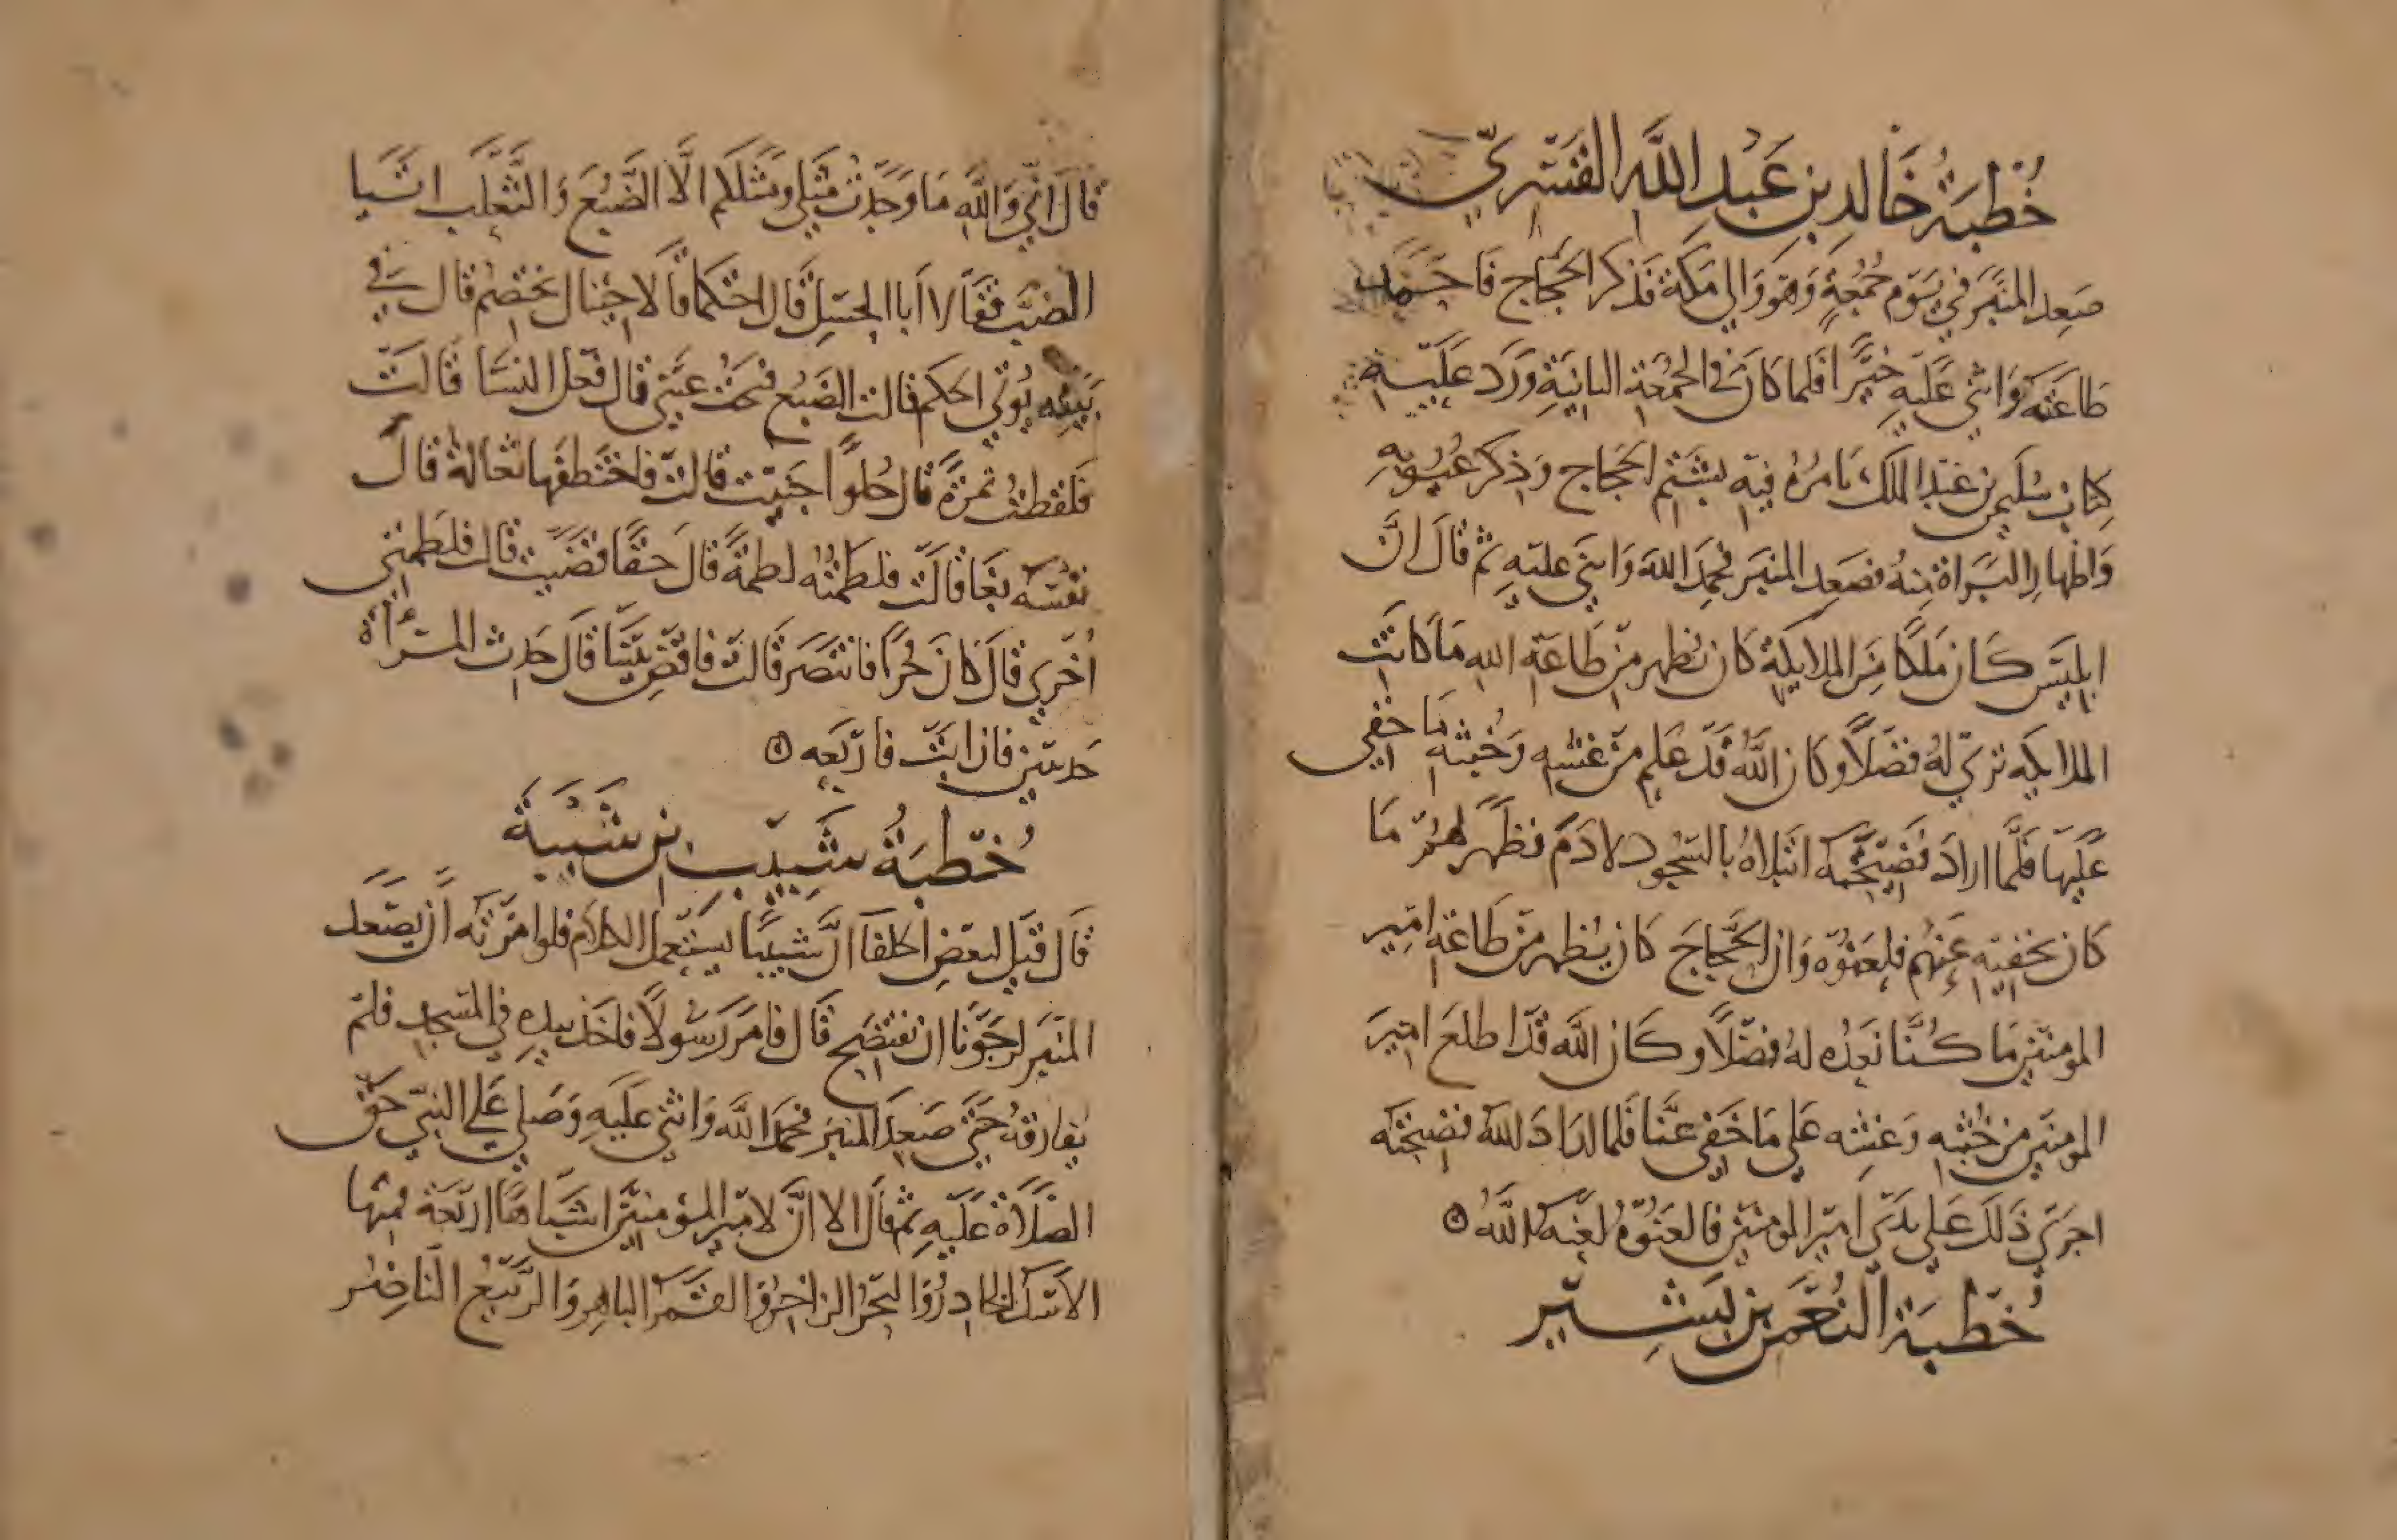 خُطبَةُ خَالدِ بنِ عَبْدِ اللَّهِ القَسْرِيّ
صَعِد المنبَر في يَوْم جُمُعَةٍ وَهوَ وَالي مَكَة فَذكر الحَجَّاج فَاحَمَد
طَاعَتَه وَاثنى عَلَيهِ خيَّرا فَلما كانَ في الجُمُعَة الثانيَةِ وَرَدَ عَلَيهِ
كتابُ سُلَيمن بن عَبْد الملك يَامُرُهُ فيهِ بشَتْم الحَجاج وَذِكر عُيُوبِهِ
وَاظهارِ البَراةِ مِنهُ فصَعِد المنبَر فحمِدَ اللهَ وَاثنى عليهِ ثم قالَ انَّ
ابليسَ كَان مَلَكا مِنَ الملايكَةِ كان يُظهر مِن طَاعَةِ اللهِ مَا كانَت
الملايكه تَرى لهُ فضَلًا وكان اللَّهُ قَدْ عَلم مِن غشه وَخُبثه مَا خفى
عليهَا فَلَّما ارادَ فَضيحَتَه ابْتلاهُ بالسُّجود لادَم فظَهَر لهُم مَا
كان يخفيهِ عَنْهُم فلعَنُوه وَان الحَجَّاجَ كان يُظهر مِن طَاعَةِ امِير
المومنين مَا كُنَّا نَعُدُه لهُ فضْلًا وكَان اللَّه قَد اطلعَ امِيرَ
المومنين من خُبثِه وَغشِه عَلى مَا خَفى عَنَّا فلما ارَادَ اللهُ فضيحَتَه
اجرَى ذَلكَ عَلى يَدَي امير المومنين فالعَنُوهُ لعَنَهُ اللَّهُ
خُطبَة النُعمن بن بَشِير
قالَ انّي وَاللَّهِ مَا وَجَدْتُ مَثلي ومَثَلَكم الَّا الضَّبُعَ وَالثَّعلَب اتَيَا
الضبَّ فقَالا اَبا الحِسْلِ قَال احتكما قَالا جئنا لنختصم قال في
بَيته يُوتى الحكم قالت الضَبُع فتحتُ عَيني قال فعْل النسَا قَالتْ
فَلَقطتُ تمرَةً قال حُلوًا جَنيت قالتْ فاختَطفَها ثعَالَةُ قالَ
نفْسَه بغَا قالَت فلطَمتُه لطمَةً قالَ حقًا قضَيت قالت فلطمني
اُخرى قالَ كانَ حُرًا فانتصَرَ قَالَتْ فاقضِ بَيْنَنا قَالَ حَدِث المرْأة
حَديثين فان ابَتْ فارْبَعه
خُطبَةُ شَبِيبِ بن شَيْبَة
قَال قيل لبَعضِ الخلفَا انَّ شبيبًا يستعمل الكلامَ فلو امَرْتَه اَن يصْعَد
المنبَر لرَجَوْنا ان يفتضِح قَال فامَر رَسُولًا فاخذ بيدِهِ في المسجد فلم
يُفارقهُ حَتى صَعِدَ المنبر فحمِدَ اللَّه وَاثنى عَلَيهِ وَصَلى عَلى النبي حَق
الصَّلاة عَليهِ ثم قال الا انَّ لامير المؤمنين اشبَاهًا ارْبَعَة فمِنها
الاسَد الخادرُ وَالبَحْرُ الزاخِرُ وَالقَمَر البَاهِر وَالرَّبيعُ النَّاضِر